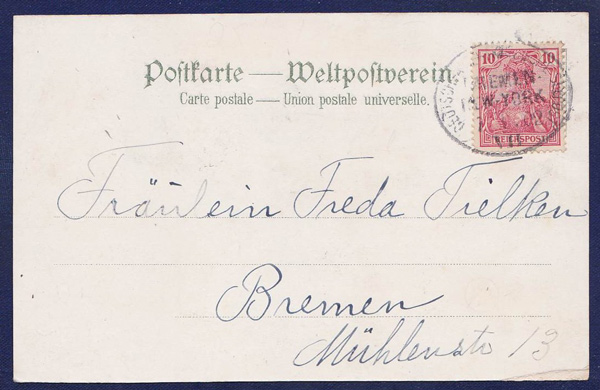 Postkarte — Weltpostverein.
Carte postale — Union postale universelle.
10 10
REICHSPOST
NEW-YORK
VII
Fräulein Freda Tielken
Bremen
Mühlenstr 13